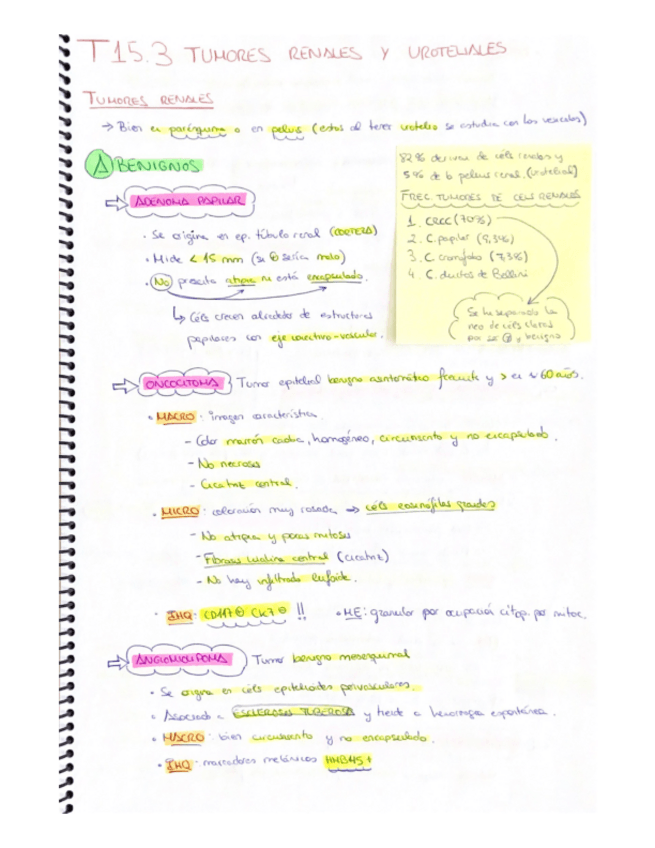 T15.3 TUMORES RENALES Y UROTELIALES
TUMORES RENALES
→ Bien en parénquima o en pelvis (estos al tener urotelio se estudian con los vesicales)
A BENIGNOS
82% derivan de céls renales y
5% de la pelvis renal. (urotelial)
FREC. TUMORES DE CÉLS RENALES
1. CRCC (70%)
2. C. papilar (9,3%)
3. C. cromófobo (7,3%)
4. C. ductos de Bellini
Se ha separado la
neo de céls claras
por ser y benigno
⇒ ADENOMA PAPILAR
· Se origina en ep. túbulo renal (CORTEZA)
· Mide < 15 mm (si sería malo)
· No presenta atipia ni está encapsulado.
↳ Céls crecen alrededor de estructuras
papilares con eje conectivo-vascular.
⇒ ONCOCITOMA Tumor epitelial benigno asintomático frecuente y > en ≈ 60 años.
• MACRO: imagen característica.
- Color marrón caoba, homogéneo, circunscrito y no encapsulado.
- No necrosis
- Cicatriz central.
• MICRO: coloración muy rosada → céls eosinófilas grandes
- No atipia y pocas mitosis
- Fibrosis hialina central (cicatriz)
- No hay infiltrado linfoide.
• IHQ: CD117 ⊕ CK7 ⊖ !! • ME: granular por ocupación citop. por mitoc.
⇒ ANGIOMIOLIPOMA Tumor benigno mesenquimal
• Se origina en céls epitelioides perivasculares.
• Asociado a ESCLEROSIS TUBEROSA y tiende a hemorragia espontánea.
• MACRO: bien circunscrito y no encapsulado.
• IHQ: marcadores melánicos HMB45+